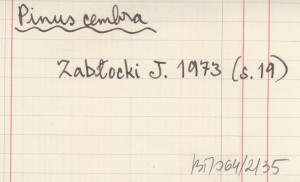 Pinus cembra
Zabłocki J. 1973 (s. 19)
BT/064/2/35